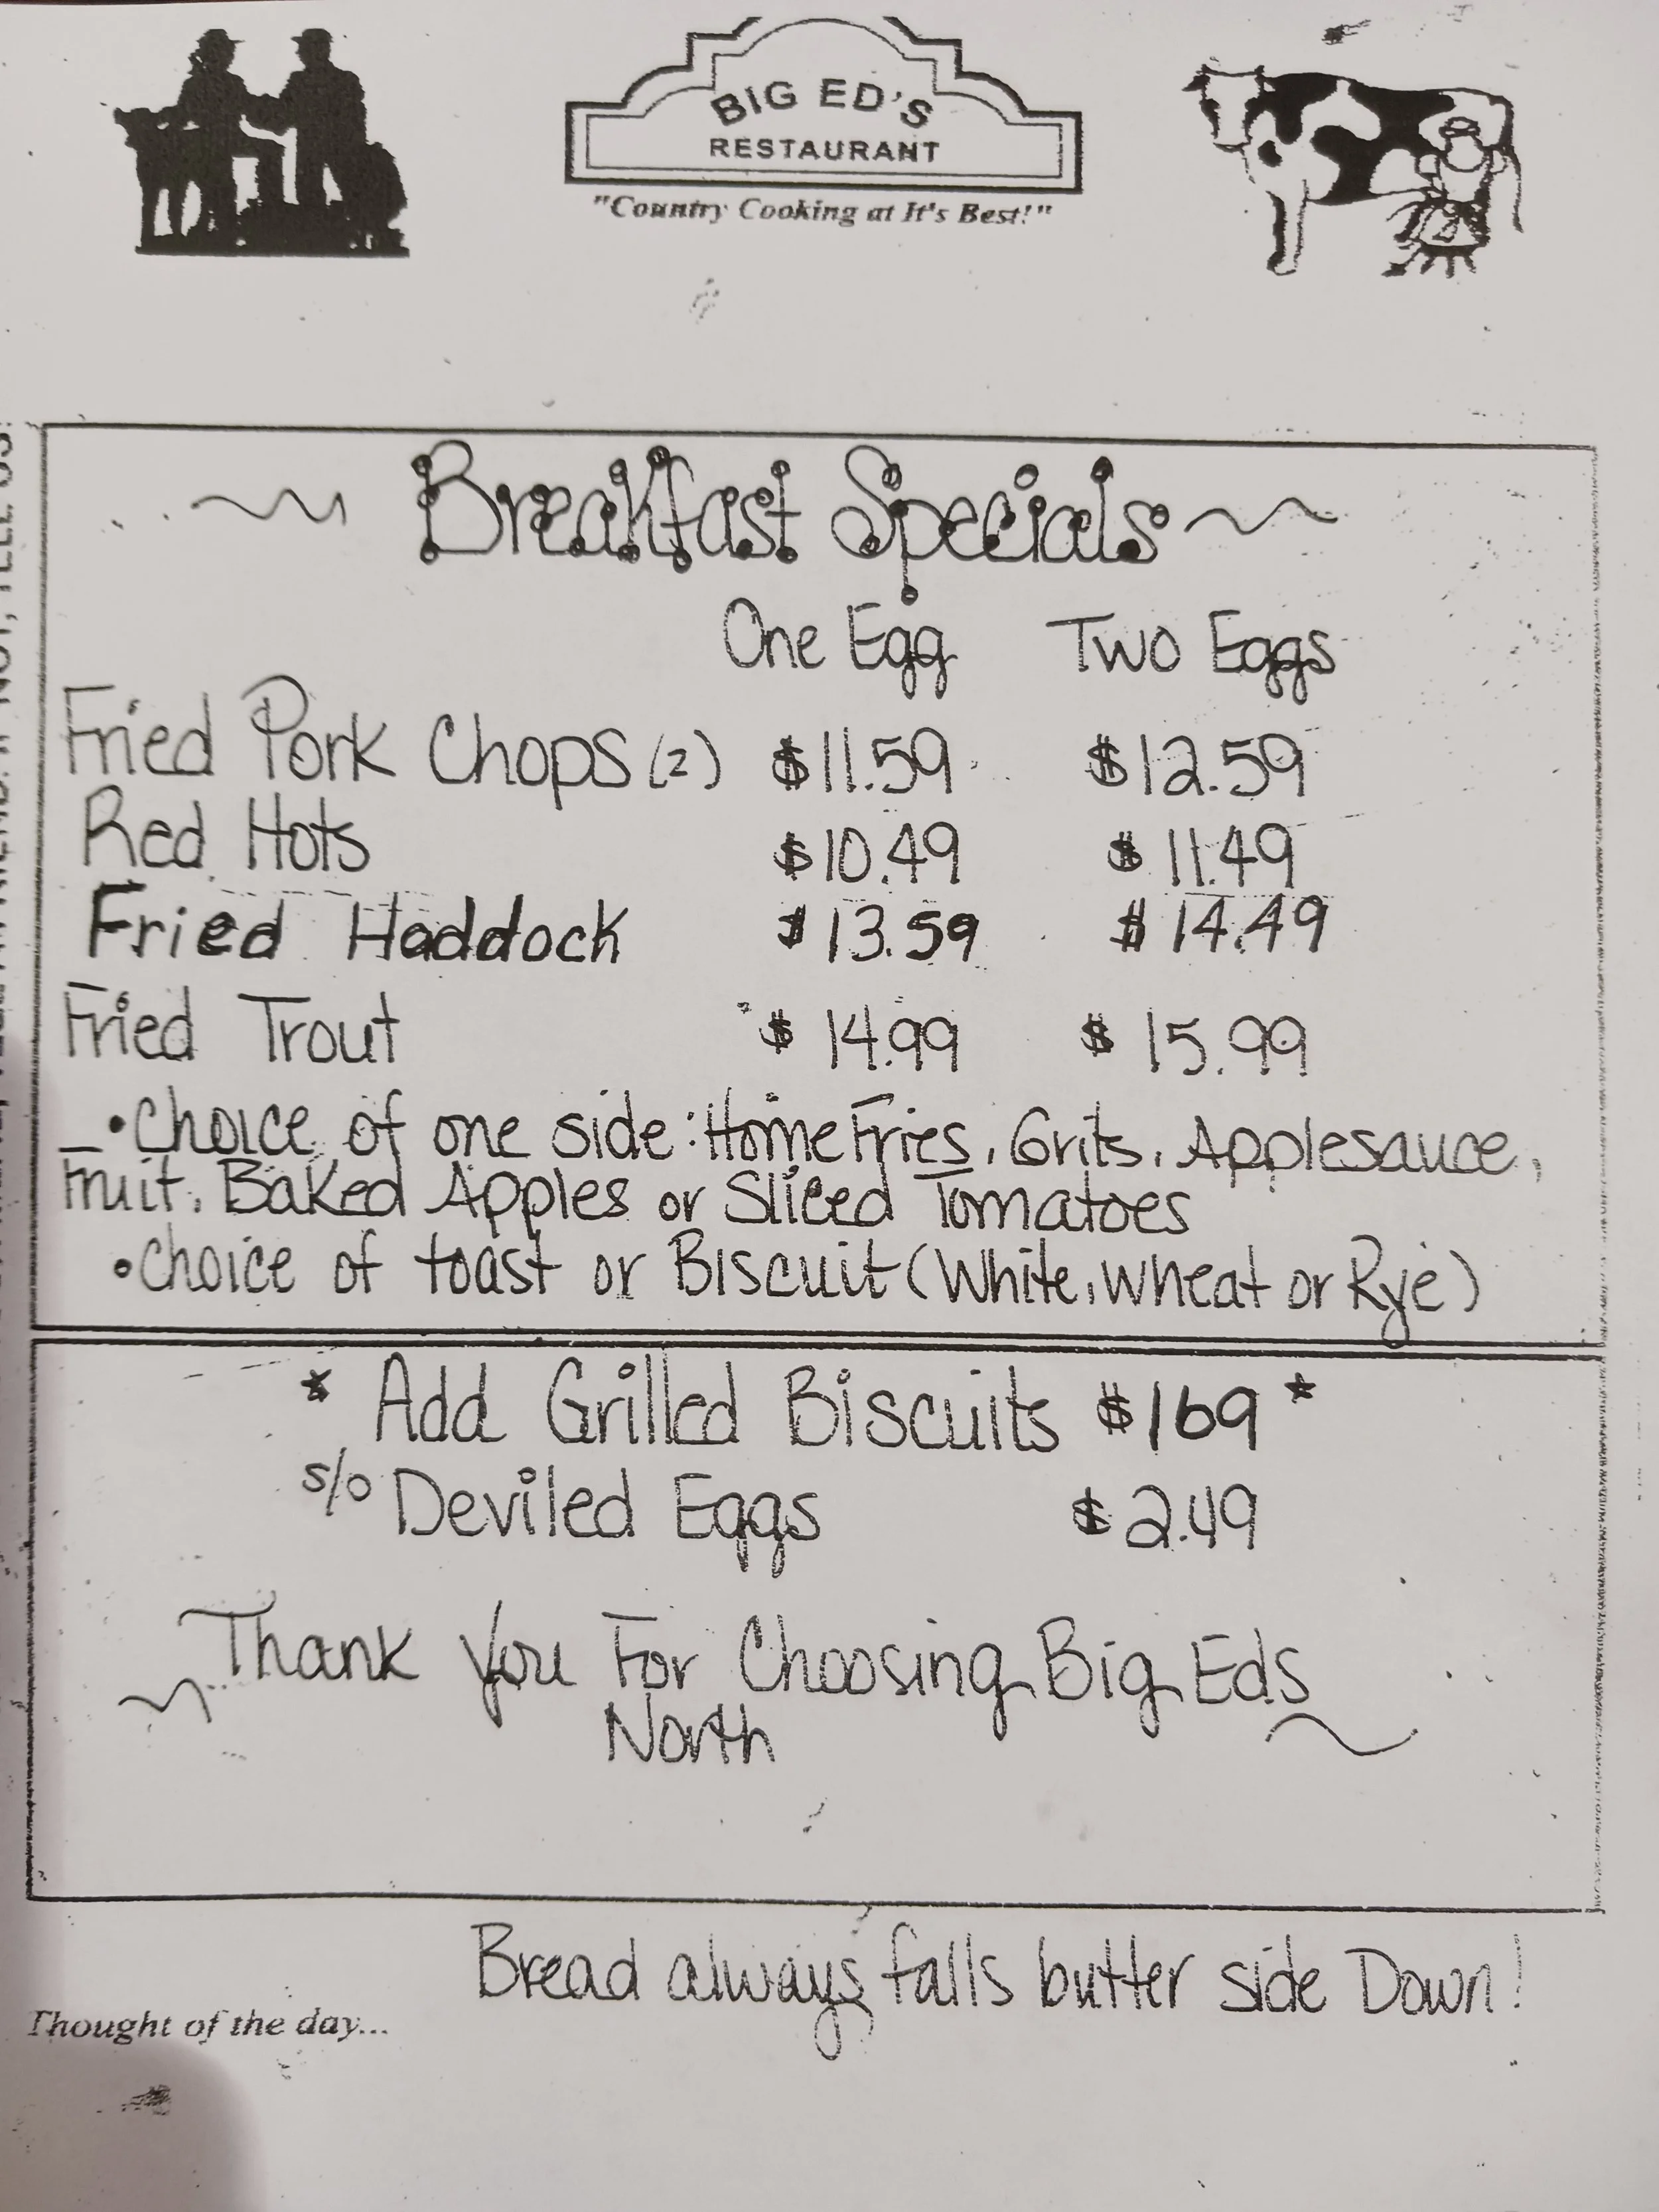 BIG ED'S
RESTAURANT
"Country Cooking at It's Best!"
Breakfast Specials
One Egg Two Eggs
Fried Pork Chops (2) $11.59 $12.59
Red Hots $10.49 $11.49
Fried Haddock $13.59 $14.49
Fried Trout $14.99 $15.99
• Choice of one side: Home Fries, Grits, Applesauce,
Fruit, Baked Apples or Sliced Tomatoes
• Choice of toast or Biscuit (White, Wheat or Rye)
* Add Grilled Biscuits $169 *
s/o Deviled Eggs $2.49
Thank You For Choosing Big Eds
North
Bread always falls butter side Down!
Thought of the day...